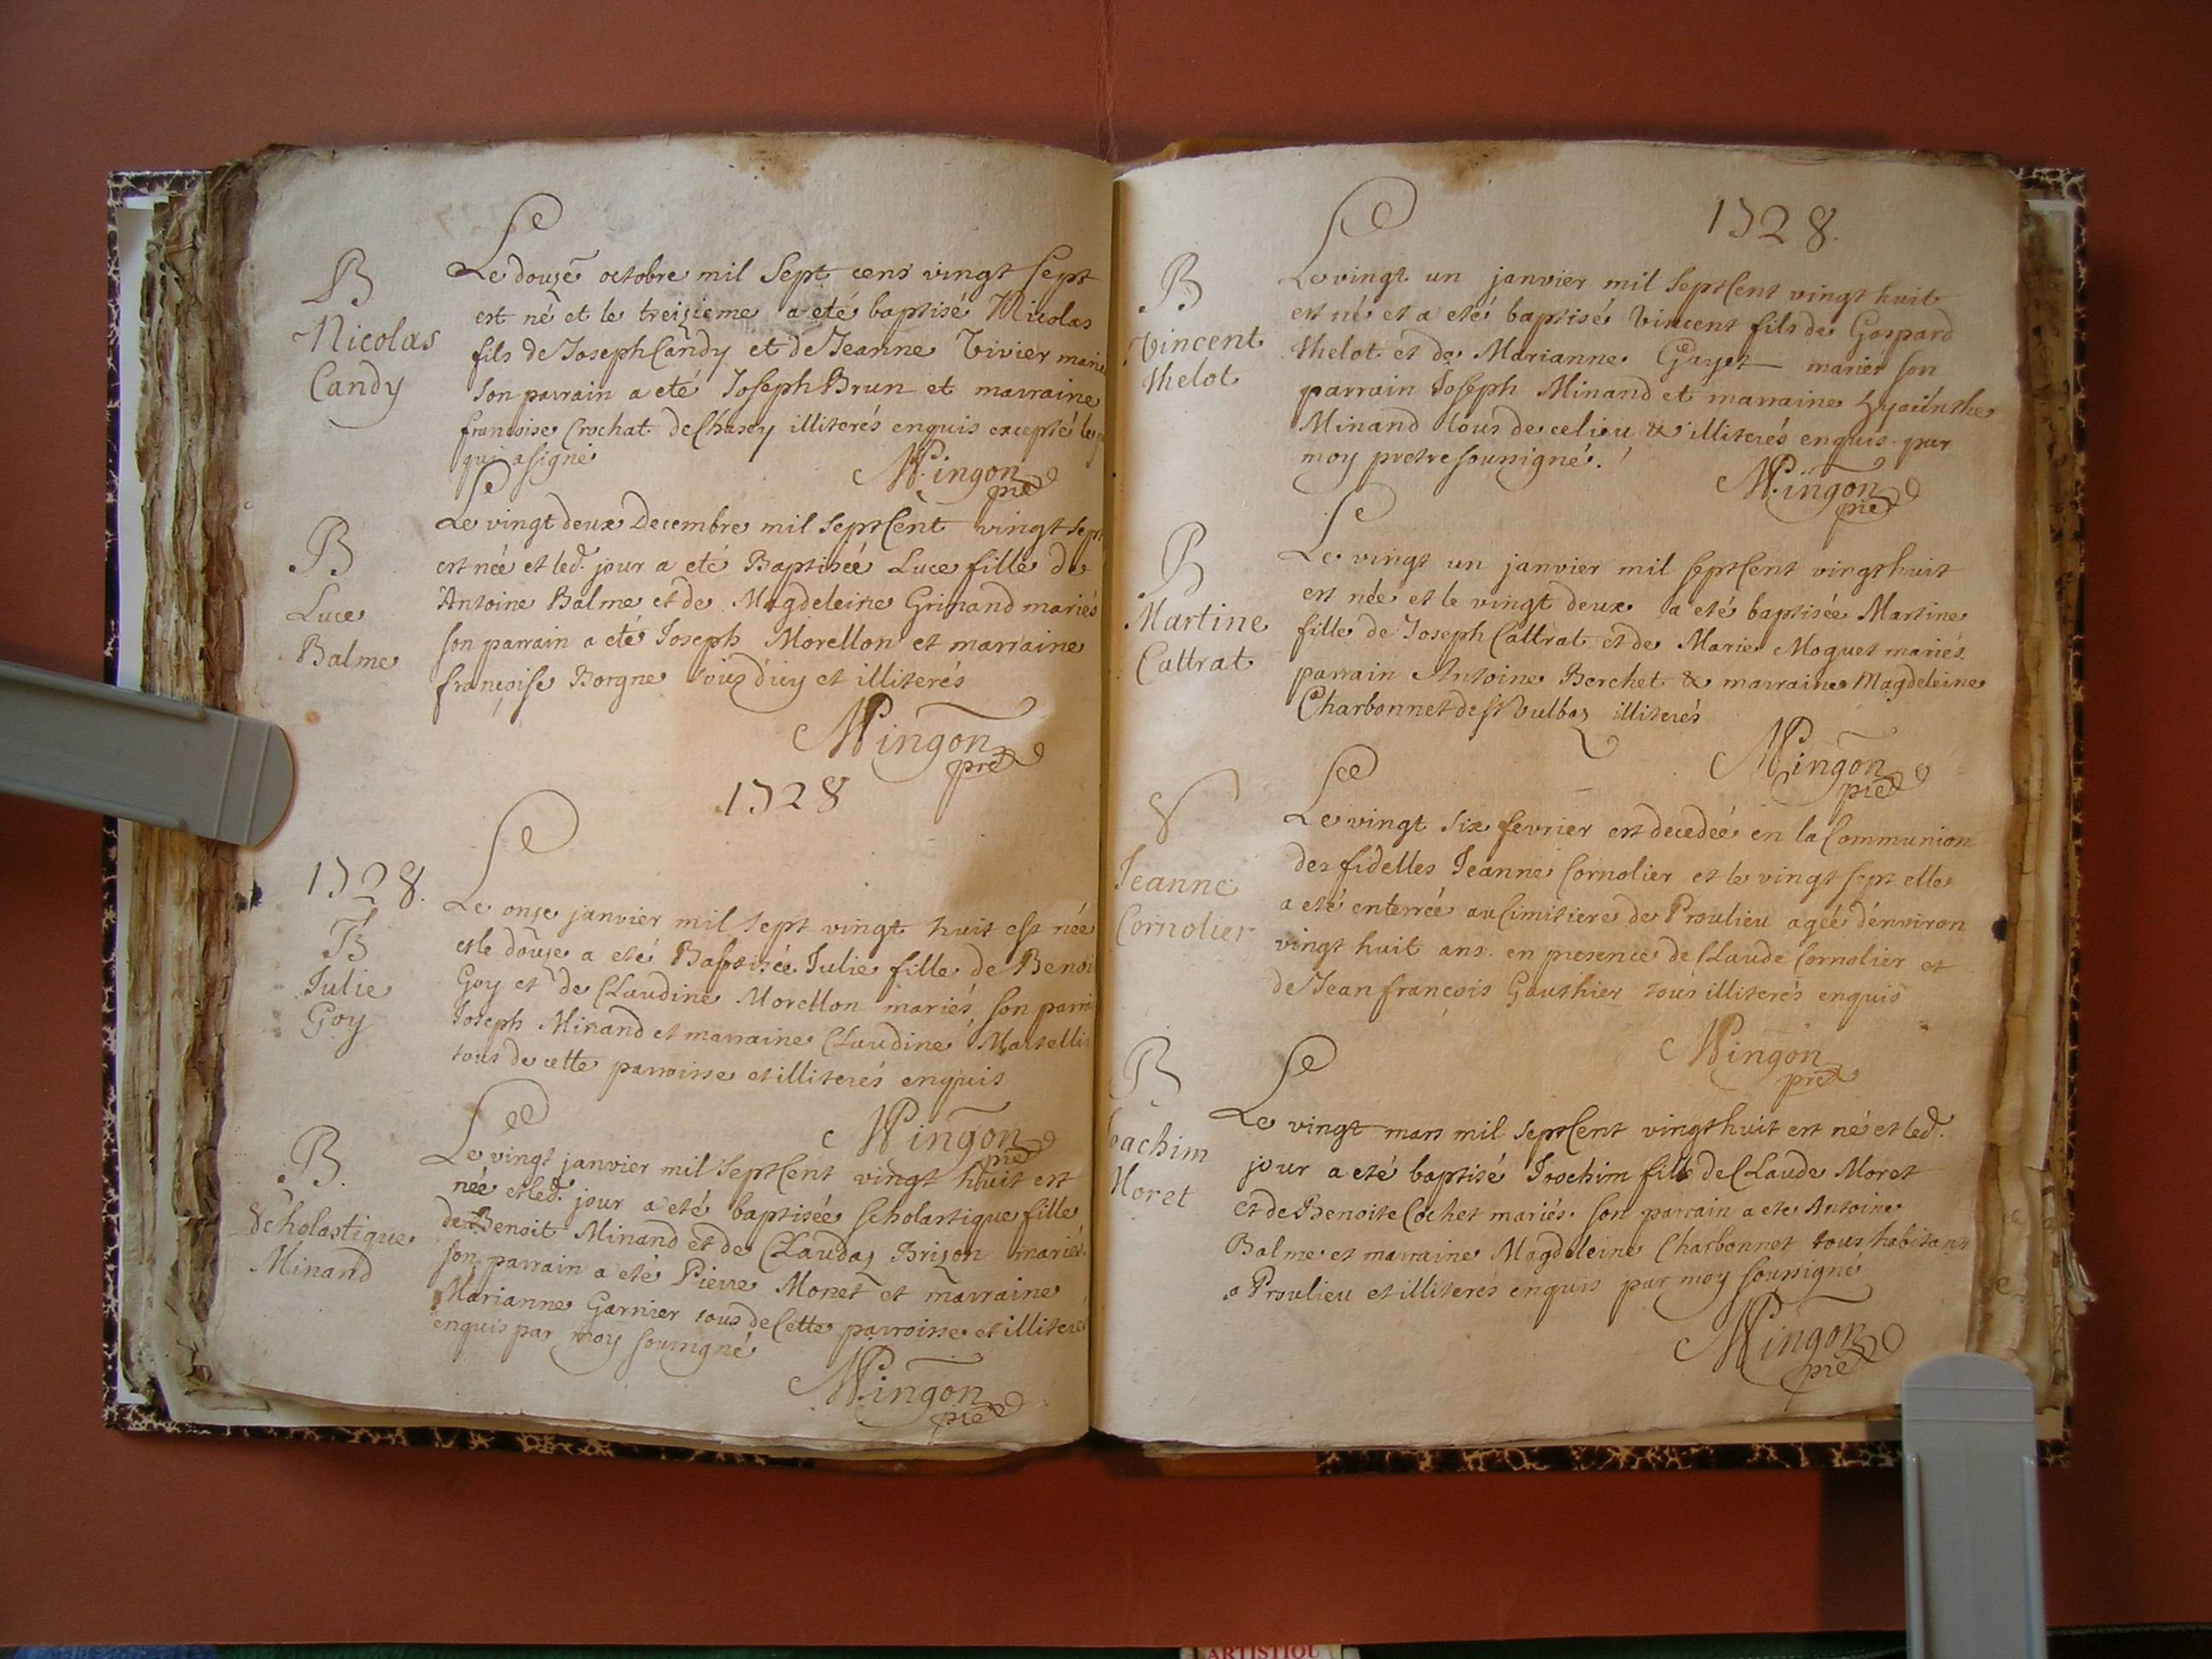 B
Nicolas
Candy
Le douze octobre mil Sept cens vingt Sept
est né et le treizieme a eté baptisé Nicolas
fils de Joseph Candy et de Jeanne Vivier
Son parrain a eté Joseph Brun et marraine
francoise Crochat de Chasey illiterés enquis excepté le
qui a signé
Mingon
pre
B
Luce
Balme
Le vingt deux Decembre mil Sept Cent vingt sept
est née et led. jour a eté Baptisée Luce fille de
Antoine Balme et de Magdeleine Grinand mariés
son parrain a eté Joseph Morellon et marraine
francoise Borgne tous d'icy et illiterés
Mingon
pre
1728
1728.
B
Julie
Goy
Le onze janvier mil sept vingt huit est née
et le douze a eté Baptisée Julie fille de Benoi
Goy et de Claudine Morellon mariés son parri
Joseph Minand et marraine Claudine
tous de cette parroisse et illiterés enquis
Mingon
pre
B.
Scholastique
Minand
Le vingt janvier mil Sept Cent vingt huit est
née et led. jour a eté baptisée Scholastique fille
de Benoit Minand et de Clauda Brison mariés.
son parrain a eté Pierre Monet et marraine
Marianne Garnier tous de Cette parroisse et illiteré
enquis par moy soussigné
Mingon
pre
1728.
B
Vincent
thelot
Le vingt un janvier mil Sept Cent vingt huit
est né et a eté baptisé Vincent fils de Gaspard
thelot et de Marianne Gayet mariés son
parrain Joseph Minand et marraine hyacinthe
Minand tous de ce lieu & illiterés enquis par
moy pretre soussigné.
Mingon
pre
B
Martine
Cattrat
Le vingt un janvier mil Sept Cent vingt huit
est née et le vingt deux a eté baptisée Martine
fille de Joseph Cattrat et de Marie Moguet mariés.
parrain Antoine Berchet & marraine Magdeleine
Charbonnet de st Vulbas illiterés
Mingon
pre
S
Jeanne
Cornolier
Le vingt six fevrier est decedée en la Communion
des fidelles Jeanne Cornolier et le vingt sept elle
a eté enterrée au Cimitiere de Proulieu agée d'environ
vingt huit ans. en presence de Claude Cornolier et
de Jean francois Gauthier tous illiterés enquis
Mingon
pre
B
oachim
Moret
Le vingt mars mil Sept Cent vingt huit est né et led.
jour a eté baptisé Joachim fils de Claude Moret
et de Benoite Cochet mariés. son parrain a ete Antoine
Balme et marraine Magdeleine Charbonnet tous habitans
a Proulieu et illiteres enquis par moy soussigné
Mingon
pre